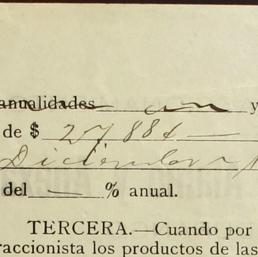 anualidades un y
de $ 27 884 —
Diciembre
del — % anual.
TERCERA.—Cuando por
raccionista los productos de las